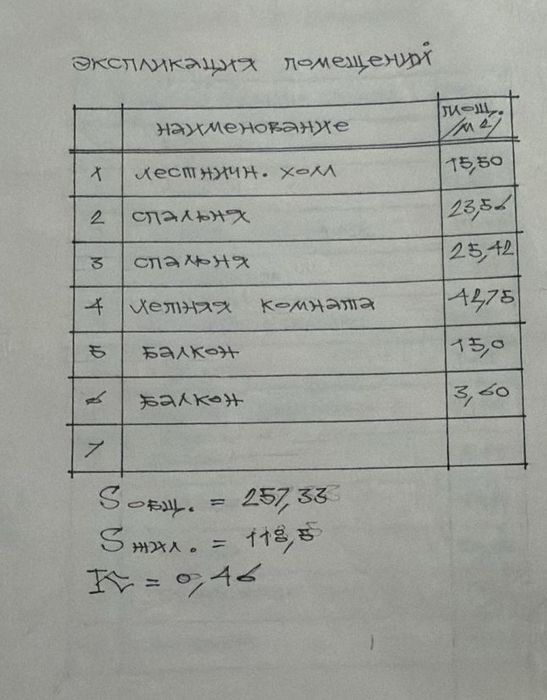 экспликация помещений
наименование площ. /м2/
1 лестничн. холл 15,50
2 спальня 23,56
3 спальня 25,42
4 летняя комната 42,75
5 балкон 15,0
6 балкон 3,60
7
S общ. = 257,33
S жил. = 118,5
K = 0,46